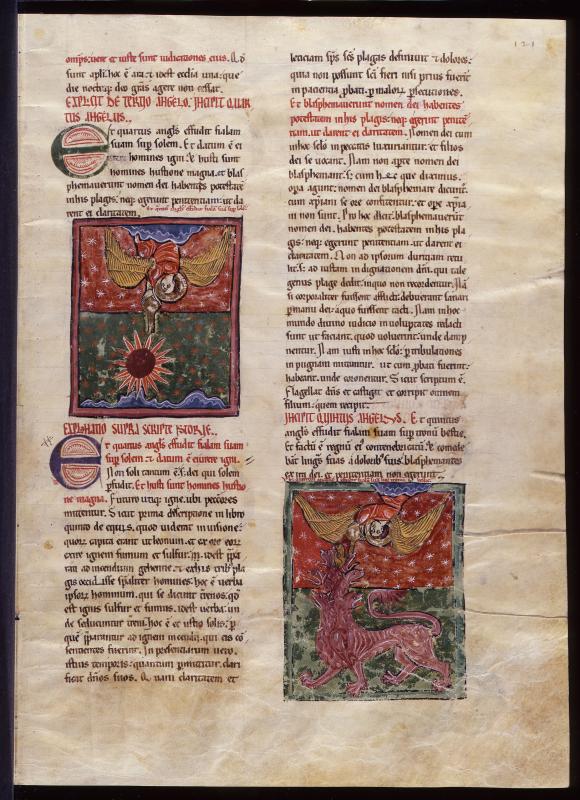 sunt apłi. hoc ē ara: ⁊ idest ecclia una: que
die noctuq; deo grās agere non cessat.
EXPLICIT DE TERTIO ANGELO. INCIPIT QUAR
TUS ANGELUS..
Et quartus angłs effudit fialam
suam sup solem. Et datum ē ei
homines igni. et husti sunt
homines hustione magna. et blas
phemauerunt nomen dei habentēs potestatē
in his plagis: neq; egerunt penitentiam: ut da
rent ei claritatem.
EXPLANATIO SUPRA SCRIPTE ISTORIE..
Et quartus angłs effudit fialam suam
sup solem ⁊ datum ē eiurere igni.
Non soli tantum
Et husti sunt homines hustio
ne magna. Futuro utiq; igne. ubi peccōres
mittentur. Sicut prima descriptione in libro
quinto de equis. quod uiderat in uisione:
quorꝝ capita erant ut leonum. et ex ore eorꝝ
exire ignem fumum et sulfur.
rati ad incendium gehenne. ⁊ ex his tribꝰ pla
gis occidisse homines. hoc ē uerba
ipsorꝝ hominum. qui se dicunt
est ignis sulfur et fumus. idest uerba: un
de seducuntur
parantur ad ignem incendii. qui eis cō
sentientes fuerint. In presenciarum uero.
istius temporis: quantum permittitur. clari
ficat dn̄os suos. Nam claritatem et
leticiam sp̄s sc̄s plagas definiuit ⁊ dolores:
quia non possunt sc̄i fieri nisi prius fuerīt
in pacientia probati. p malorꝝ psecutiones.
Et blasphemauerunt nomen dei habentes
potestatem in his plagis: neq; egerunt penitē
tiam. ut darent ei claritatem. Nomen dei cum
in hoc sclō in peccatis luxuriantur: et filios
dei se uocant. Nam non aperte nomen dei
blasphemant: s; cum hec que diximus.
opera agunt: nomen dei blasphemare dicunt.
cum xp̄iani se ore confitentur. et ope xp̄iani
non sunt. Pro hoc dicit. blasphemauerūt
nomen dei. habentes potestatem in his pla
gis: neq; egerunt penitentiam. ut darent ei
claritatem. Non ad ipsorum duriciam retu
lit. s; ad iustam indignationem dn̄i. qui tale
genus plage dedit. in quo non recordentur. Nā
si corporaliter fuissent afflicti: debuerant sanari
p manu dei: a quo fuissent tacti. Nam in hoc
mundo diuino iudicio in uoluptates relaxati
sunt ut faciant. quod uoluerint: unde damp
nentur. Nam iusti in hoc sclō: p tribulationes
in pugnam mittuntur. ut cum pbati fuerint:
habeant. unde coronentur. Sicut scriptum ē.
Flagellat dn̄s et castigat et corripit omnem
filium: quem recipit.
INCIPIT QUINTUS ANGELUS. Et quintus
angłs effudit fialam suam sup tronū bestie.
Et factū ē regnū eiꝰ contenebricatū. ⁊ comede
bant linguas suas a doloribꝰ suis. blasphemantes
dei. et penitentiam non egerunt.